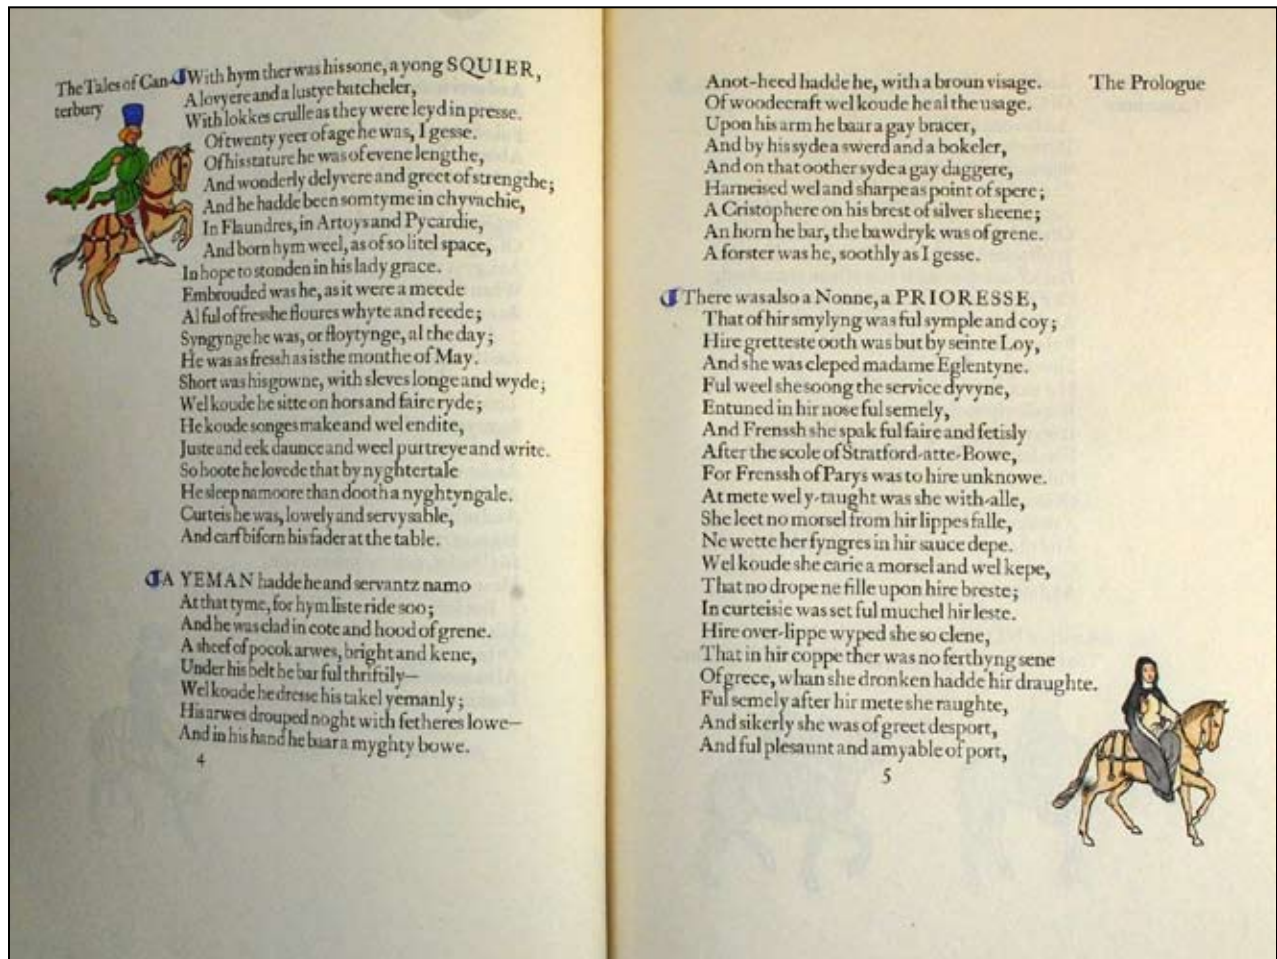 The Tales of Can-
terbury
With hym ther was his sone, a yong SQUIER,
A lovyere and a lustye batcheler,
With lokkes crulle as they were leyd in presse.
Of twenty yeer of age he was, I gesse.
Of his stature he was of evene lengthe,
And wonderly delyvere and greet of strengthe;
And he hadde been somtyme in chyvachie,
In Flaundres, in Artoys and Pycardie,
And born hym weel, as of so litel space,
In hope to stonden in his lady grace.
Embrouded was he, as it were a meede
Al ful of fresshe floures whyte and reede;
Syngynge he was, or floytynge, al the day;
He was as fressh as is the monthe of May.
Short was his gowne, with sleves longe and wyde;
Wel koude he sitte on hors and faire ryde;
He koude songes make and wel endite,
Juste and eek daunce and weel purtreye and write.
So hoote he lovede that by nyghtertale
He sleep namoore than dooth a nyghtyngale.
Curteis he was, lowely and servysable,
And carf biforn his fader at the table.
A YEMAN hadde he and servantz namo
At that tyme, for hym liste ride soo;
And he was clad in cote and hood of grene.
A sheef of pocok arwes, bright and kene,
Under his belt he bar ful thriftily—
Wel koude he dresse his takel yemanly;
His arwes drouped noght with fetheres lowe—
And in his hand he baar a myghty bowe.
4
The Prologue
A not-heed hadde he, with a broun visage.
Of woodecraft wel koude he al the usage.
Upon his arm he baar a gay bracer,
And by his syde a swerd and a bokeler,
And on that oother syde a gay daggere,
Harneised wel and sharpe as point of spere;
A Cristophere on his brest of silver sheene;
An horn he bar, the bawdryk was of grene.
A forster was he, soothly as I gesse.
There was also a Nonne, a PRIORESSE,
That of hir smylyng was ful symple and coy;
Hire gretteste ooth was but by seinte Loy,
And she was cleped madame Eglentyne.
Ful weel she soong the service dyvyne,
Entuned in hir nose ful semely,
And Frenssh she spak ful faire and fetisly
After the scole of Stratford-atte-Bowe,
For Frenssh of Parys was to hire unknowe.
At mete wel y-taught was she with-alle,
She leet no morsel from hir lippes falle,
Ne wette her fyngres in hir sauce depe.
Wel koude she carie a morsel and wel kepe,
That no drope ne fille upon hire breste;
In curteisie was set ful muchel hir leste.
Hire over-lippe wyped she so clene,
That in hir coppe ther was no ferthyng sene
Of grece, whan she dronken hadde hir draughte.
Ful semely after hir mete she raughte,
And sikerly she was of greet desport,
And ful plesaunt and amyable of port,
5